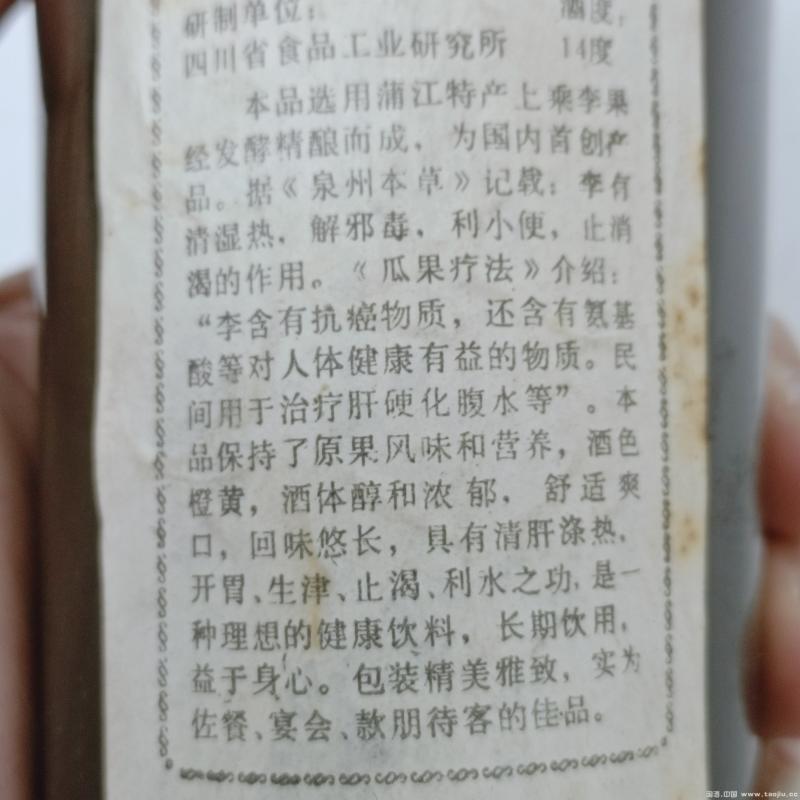 研制单位： 酒度：
四川省食品工业研究所 14度
本品选用蒲江特产上乘李果
经发酵精酿而成，为国内首创产
品。据《泉州本草》记载：李有
清湿热，解邪毒，利小便，止消
渴的作用。《瓜果疗法》介绍：
“李含有抗癌物质，还含有氨基
酸等对人体健康有益的物质。民
间用于治疗肝硬化腹水等”。本
品保持了原果风味和营养，酒色
橙黄，酒体醇和浓郁，舒适爽
口，回味悠长，具有清肝涤热，
开胃、生津、止渴、利水之功，是一
种理想的健康饮料，长期饮用，
益于身心。包装精美雅致，实为
佐餐、宴会、款朋待客的佳品。
国酒.中国 www.taojiu.cc